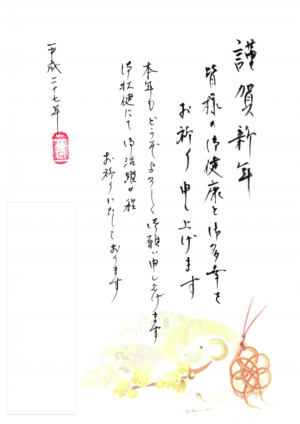 謹賀新年
皆様の御健康と御多幸を
お祈り申し上げます
本年もどうぞよろしく御願い申し上げます
御壮健にて御活躍の程
お祈りいたしております
平成二十七年